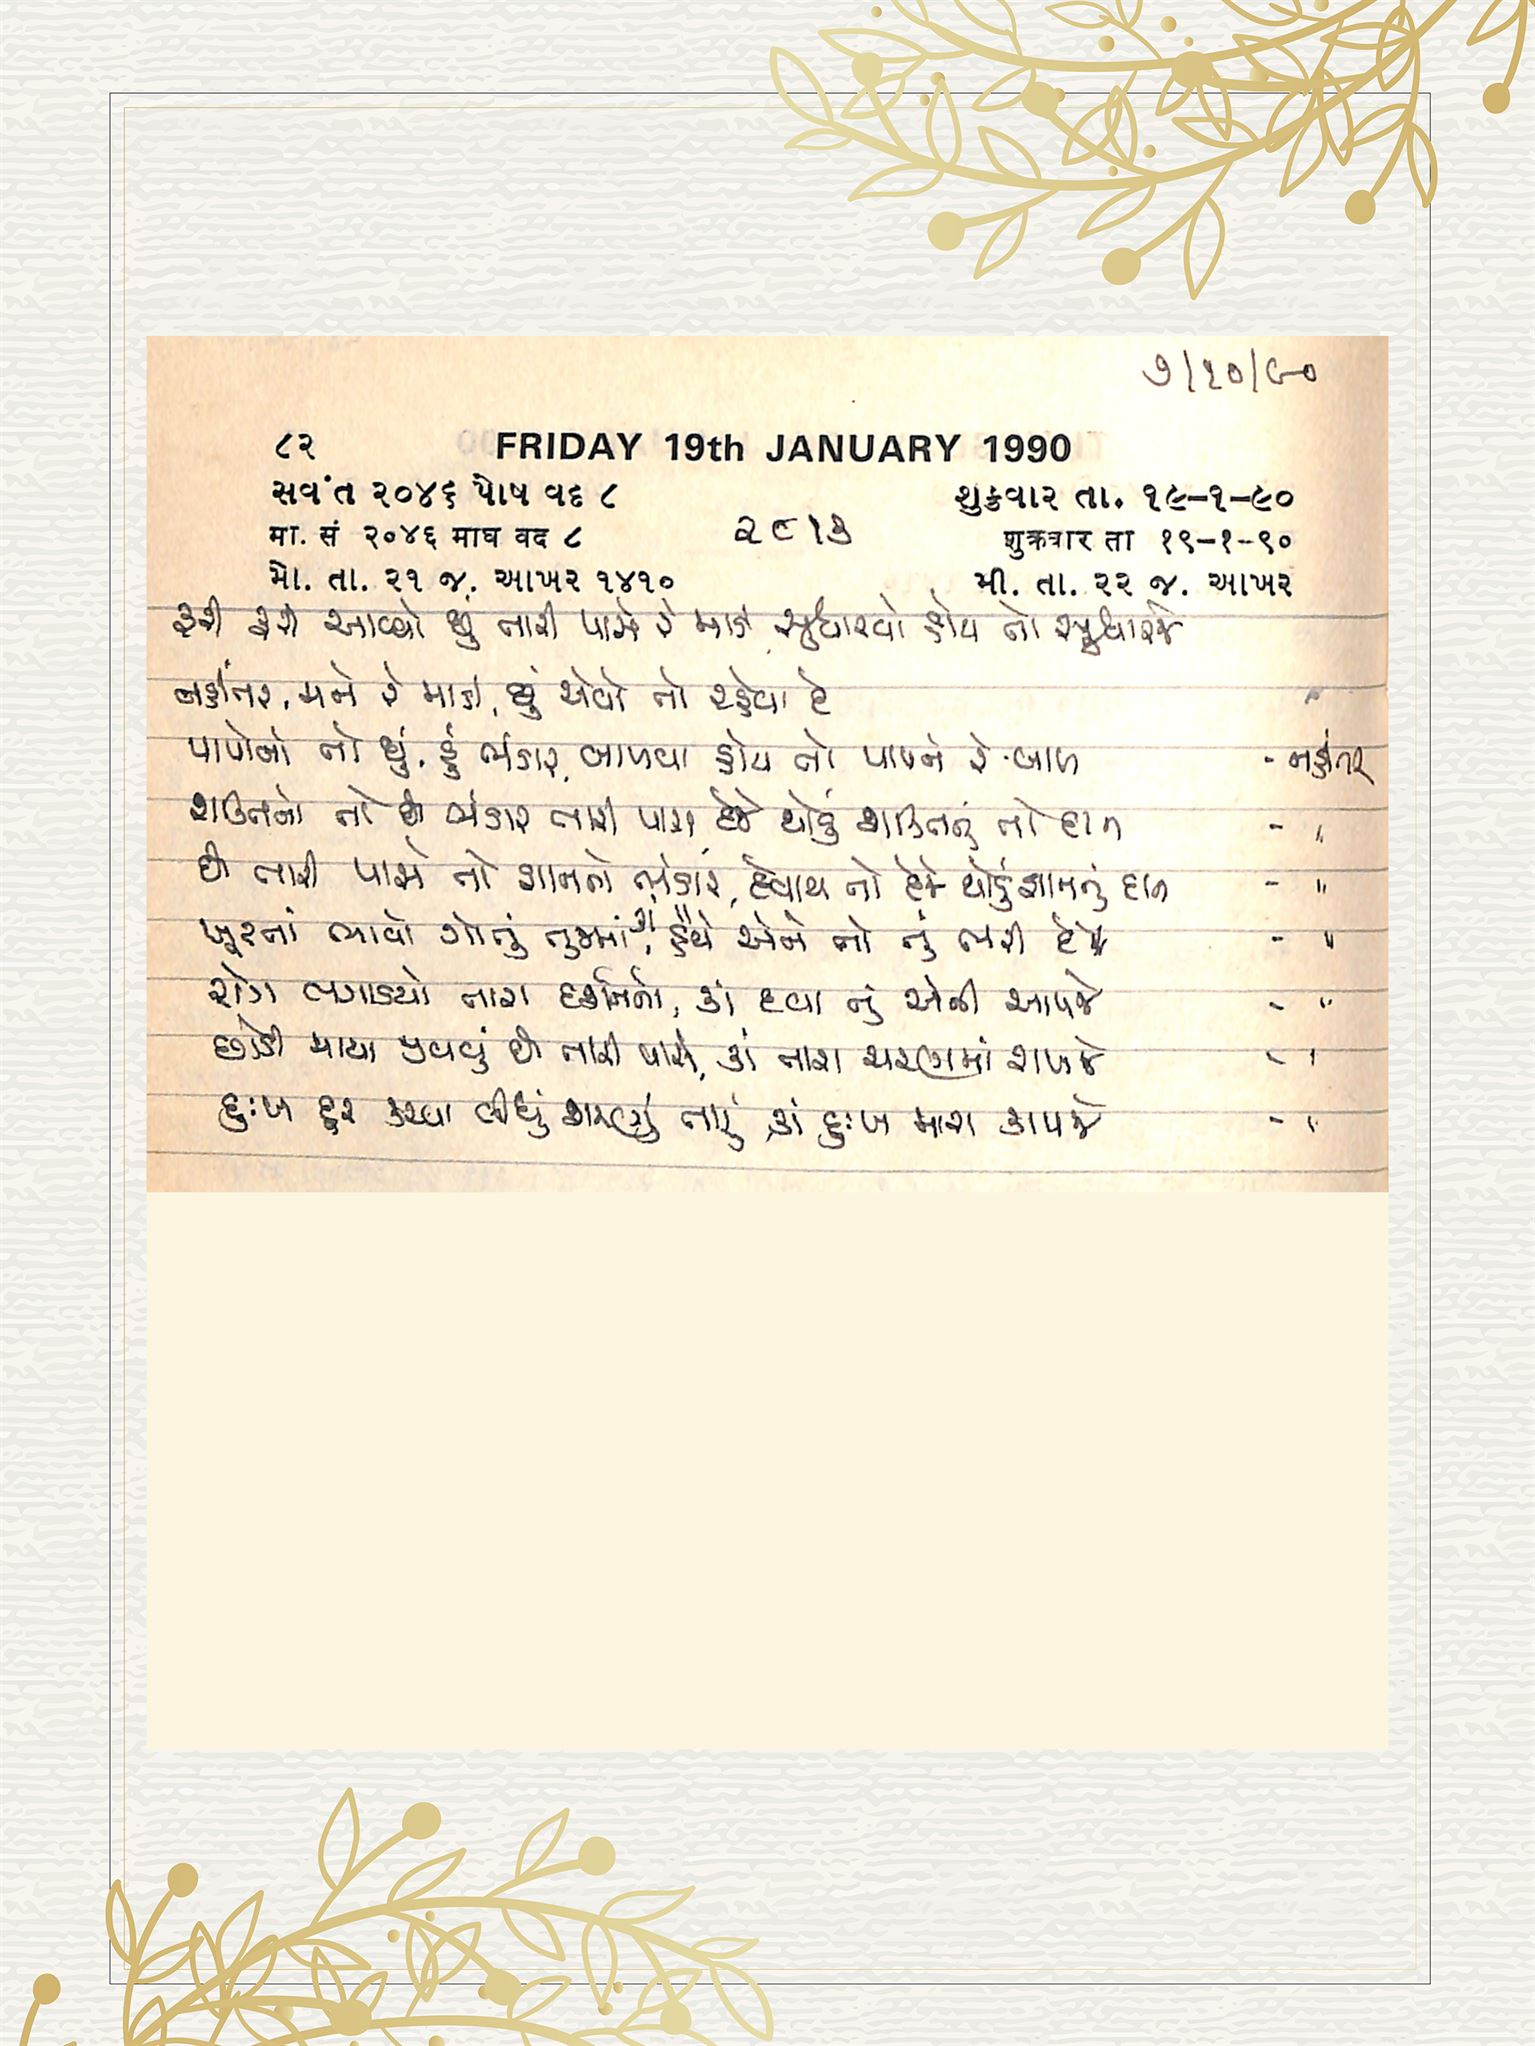 ૭/૧૦/૯૦
૮૨ FRIDAY 19th JANUARY 1990
સવંત ૨૦૪૬ પોષ વદ ૮ શુક્રવાર તા. ૧૯-૧-૯૦
मा. सं २०४६ माघ वद ८ शुक्रवार ता १९-१-९०
મો. તા. ૨૧ જ. આખર ૧૪૧૦ મી. તા. ૨૨ જ. આખર
૨૯૧૩
ફરી ફરી આવ્યો છું તારી પાસે રે માડી, સુધારવો હોય તો સુધારજે
નહીંતર, મને રે માડી, છું એવો તો રહેવા દે
પાપોનો તો છું. હું ભંડાર, બાળવા હોય તો પાપને રે બાળ - નહીંતર
શક્તિનો તો છે ભંડાર તારી પાસે, દેજે થોડું શક્તિનું તો દાન - "
છે તારી પાસે તો જ્ઞાનનો ભંડાર, દેવાય તો દેજે થોડું જ્ઞાનનું દાન - "
ભાવો હૈયે એને તો તું ભરી દેજે - "
રોગ લગાડયો તારા દર્શનનો, કાં દવા તું એની આપજે - "
છોડી માયા છે તારી પાસે, કાં તારા ચરણમાં રાખજે - "
દુઃખ દૂર કરવા લીધું શરણું તારું, કાં દુઃખ મારા કાપજે - "